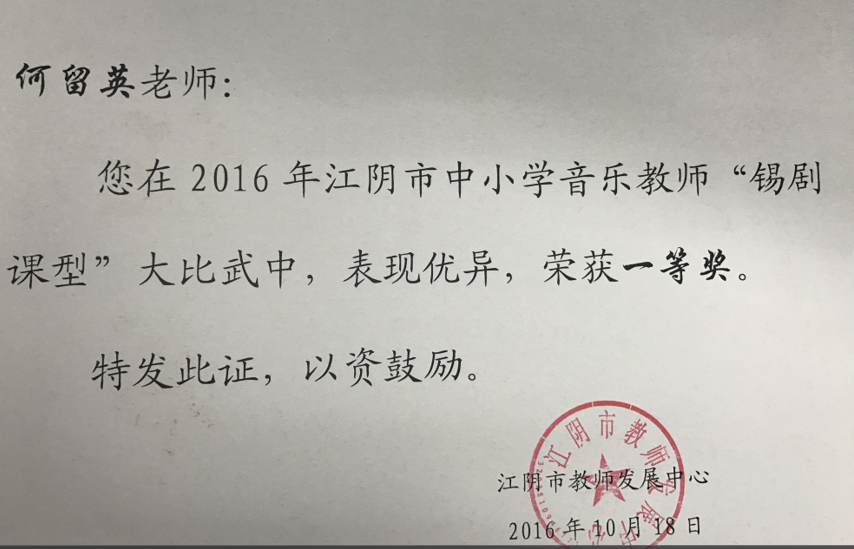 何留英老师：
您在 2016 年江阴市中小学音乐教师“锡剧
课型”大比武中，表现优异，荣获一等奖。
特发此证，以资鼓励。
江阴市教师发展中心
江阴市教师发展中心
2016 年 10 月 18 日